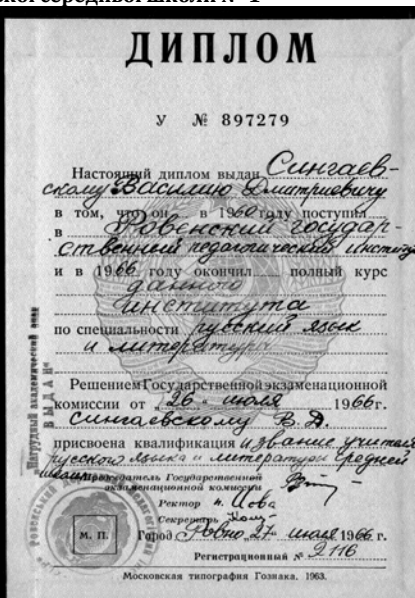 ДИПЛОМ
У № 897279
Настоящий диплом выдан Сингаев-
скому Василию Дмитриевичу
в том, что он в 1960 году поступил
в Ровенский государ-
ственный педагогический институт
и в 1966 году окончил полный курс
данного
института
по специальности русский язык
и литература
Решением Государственной экзаменационной
комиссии от „26“ июля 1966 г.
Сингаевскому В. Д.
присвоена квалификация и звание учителя
русского языка и литературы средней
школы
Председатель Государственной
экзаменационной комиссии
Ректор
Секретарь
М. П.
Город Ровно 27 июля 1966 г.
Регистрационный № 2116
Московская типография Гознака. 1963.
Нагрудный академический знак
ВЫДАН